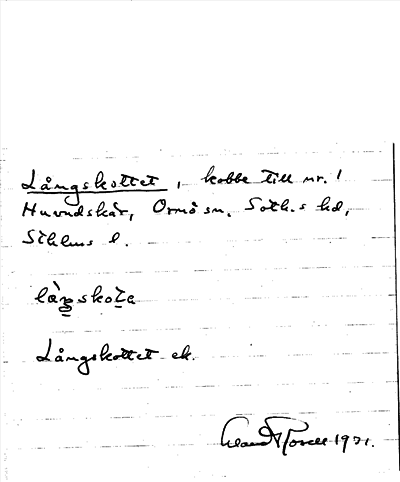 Långskottet, kobbe till nr. 1
Huvudskär, Ornö sn, Soth.s hd,
Sthlms l.
långskota
Långskottet ek.
1971.